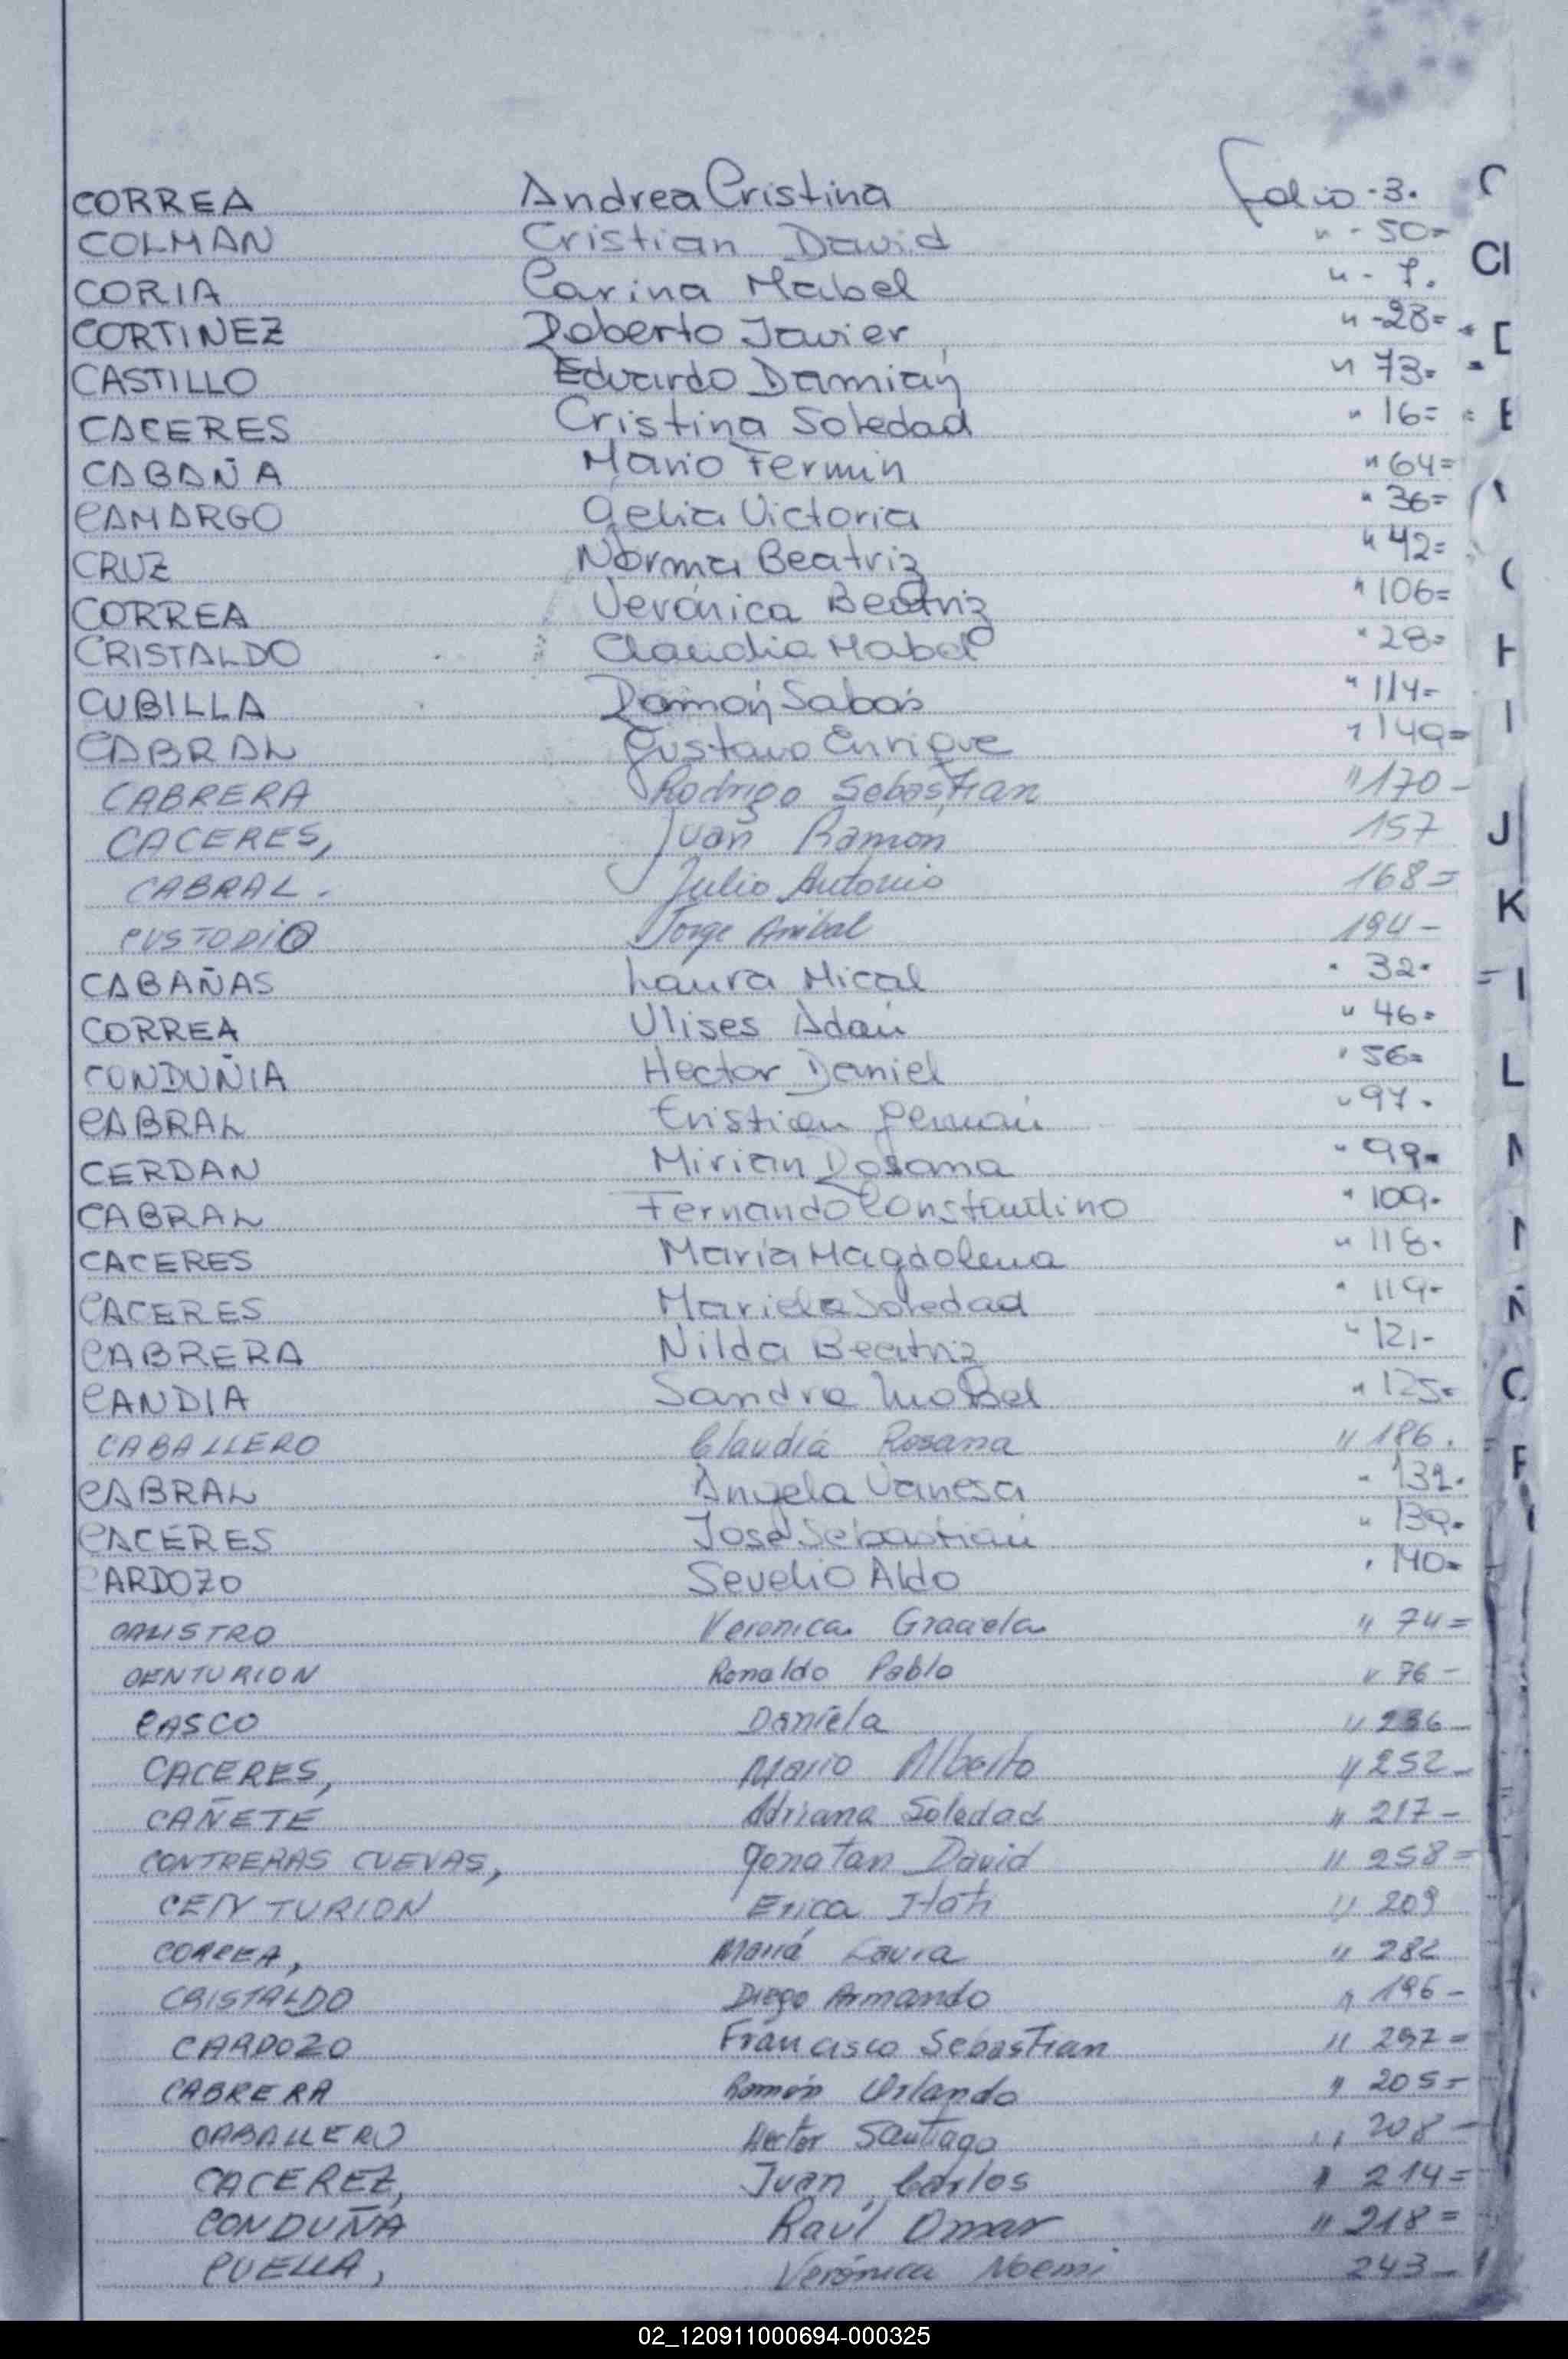 CORREA Andrea Cristina folio -3.
COLMAN Cristian David " - 50=
CORIA Carina Mabel " - 7.
CORTINEZ Roberto Javier " -28=
CASTILLO Eduardo Damián " 73=
CACERES Cristina Soledad " 16=
CABAÑA Mario Fermin " 64=
CAMARGO Celia Victoria " 36=
CRUZ Norma Beatriz " 42=
CORREA Verónica Beatriz " 106=
CRISTALDO Claudia Mabel " 28=
CUBILLA Ramón Sabás " 114-
CABRAL Gustavo Enrique " 149=
CABRERA Rodrigo Sebastian " 170-
CACERES, Juan Ramón 157
CABRAL. Julio Antonio 168=
CUSTODIO Jorge Anibal 194-
CABAÑAS Laura Mical " 32.
CORREA Ulises Adán " 46=
CONDUÑIA Hector Daniel " 56=
CABRAL Cristian Germán " 97.
CERDAN Mirian Rosana " 99.
CABRAL Fernando Constantino " 109.
CACERES María Magdalena " 118.
CACERES Mariela Soledad " 119-
CABRERA Nilda Beatriz " 121-
CANDIA Sandra Mabel " 125=
CABALLERO Claudia Rosana " 186.
CABRAL Angela Vanesa " 132.
CACERES José Sebastián " 139.
CARDOZO Sevelio Aldo " 140=
CALISTRO Veronica Graciela " 74=
CENTURION Ronaldo Pablo " 76-
CASCO Daniela " 236-
CACERES, Mario Alberto " 252-
CAÑETE Adriana Soledad " 217-
CONTRERAS CUEVAS, Jonatan David " 258=
CENTURION Erica Itatí " 209
CORREA, María Laura " 282
CRISTALDO Diego Armando " 196-
CARDOZO Francisco Sebastian " 297=
CABRERA Ramón Orlando " 205-
CABALLERO Hector Santiago " 208-
CACEREZ, Juan Carlos " 214=
CONDUÑA Raúl Omar " 218=
CUELLA, Verónica Noemi 243-
J
K
L
02_120911000694-000325